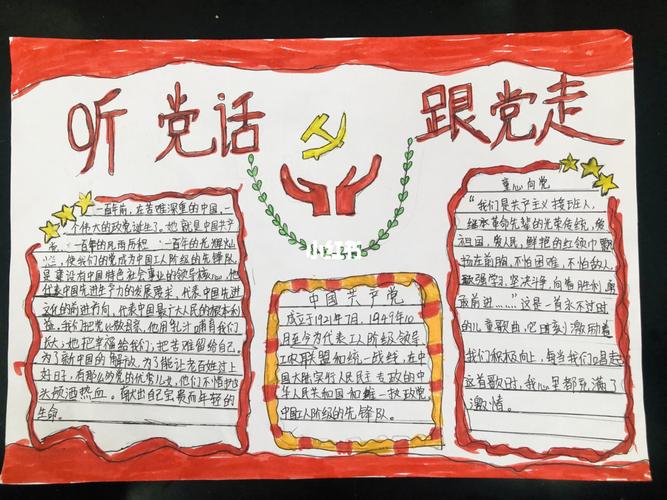 听党话 跟党走
一百年前，在苦难深重的中国，一
个伟大的政党诞生了。她就是中国共产
党，一百年的风雨历程，一百年的光辉灿
烂，使我们的党成为中国工人阶级的先锋队，
是建设有中国特色社会事业的领导核心，他
代表中国先进生产力的发展要求，代表中国先进
文化的前进方向，代表中国最广大人民的根本利
益，我们把党比做母亲，他用乳汁哺育我们
长大；她把幸福给我们；把苦难留给自己。
为了新中国的解放，为了能让老百姓过上
好日子，有那么的党的优秀儿女，他们不惜抛
头颅洒热血。献出自己宝贵而年轻的
生命。
小红书
中国共产党
成立于1921年7月，1949年10
月至今为代表工人阶级领导
工农联盟和统一战线，在中
国大陆实行人民民主专政的中
华人民共和国和唯一执政党。
中国工人阶级的先锋队。
童心向党
“我们是共产主义接班人，
继承革命先辈的光荣传统，爱
祖国，爱人民，鲜艳的红领巾飘
扬在前胸，不怕困难，不怕敌人，
顽强学习，坚决斗争，向着胜利，勇
敢前进……”这是一首永不过时
的儿童歌曲，它时刻激励着
我们积极向上，每当我们唱起
这首歌时，我心里都充满了
激情。